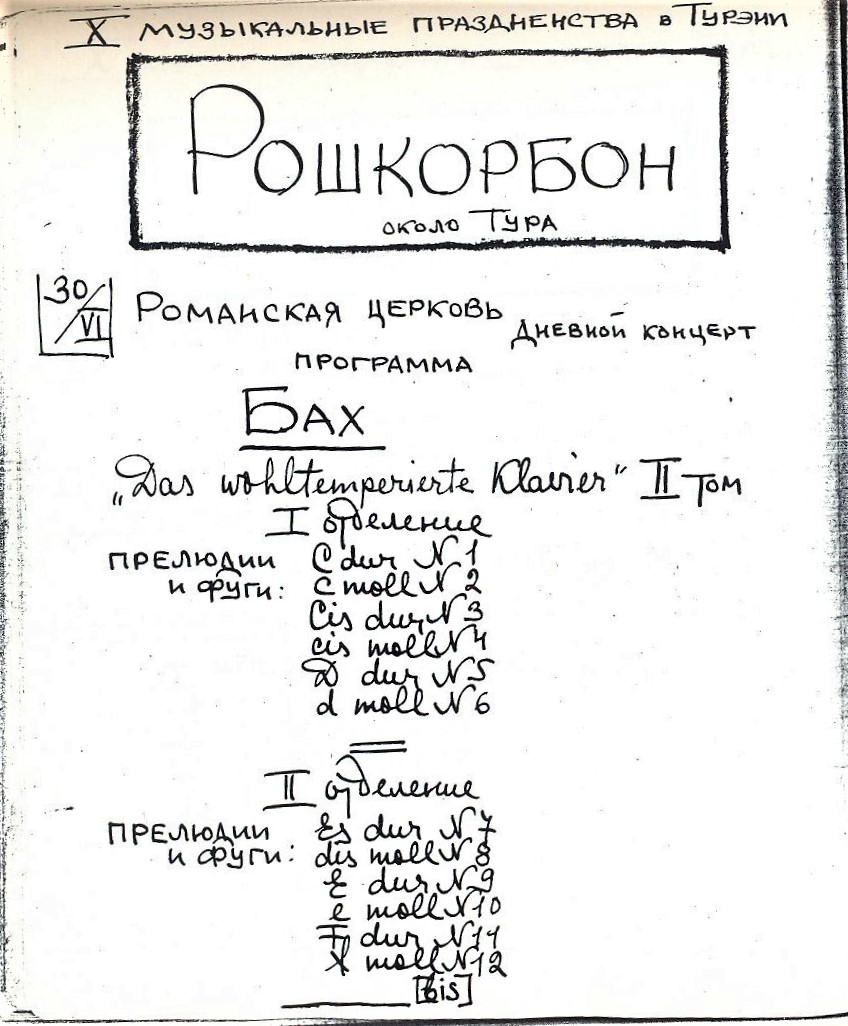 X МУЗЫКАЛЬНЫЕ ПРАЗДНЕНСТВА в ТУРЭНИ
РОШКОРБОН
ОКОЛО ТУРА
30/VI РОМАНСКАЯ ЦЕРКОВЬ ДНЕВНОЙ КОНЦЕРТ
ПРОГРАММА
БАХ
„Das wohltemperierte Klavier“ II ТОМ
I отделение
ПРЕЛЮДИИ C dur N 1
и ФУГИ: c moll N 2
Cis dur N 3
cis moll N 4
D dur N 5
d moll N 6
II отделение
ПРЕЛЮДИИ Es dur N 7
и ФУГИ: dis moll N 8
E dur N 9
e moll N 10
F dur N 11
f moll N 12
[bis]